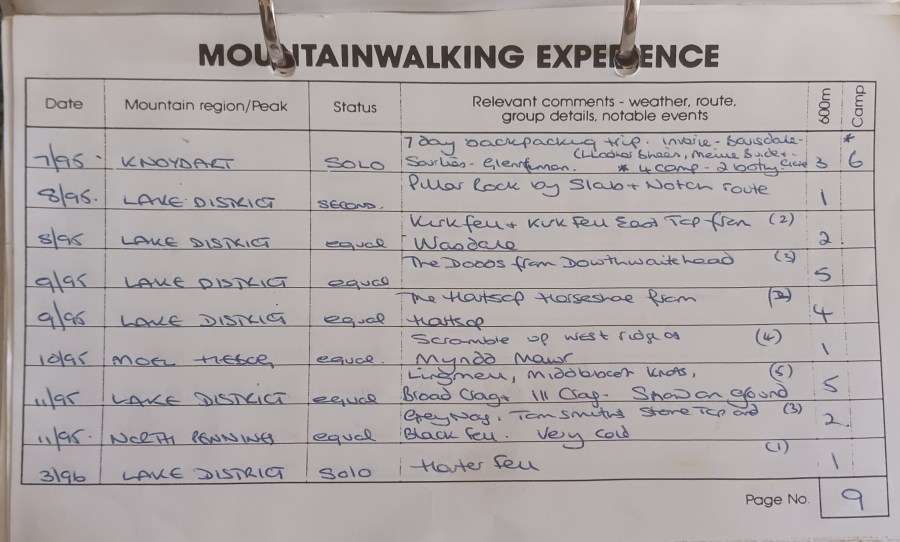 MOUNTAINWALKING EXPERIENCE
Date Mountain region/Peak Status Relevant comments - weather, route, group details, notable events 600m Camp
7/95. KNOYDART SOLO 7 day backpacking trip. Inverie - Barisdale -
Sourlies - Glenfinnan. (Ladhar Bheinn, Meall Buidhe, * 4 camp - 2 bothy. 3 * 6
8/95. LAKE DISTRICT SECOND. Pillar Rock by Slab + Notch route 1
8/95 LAKE DISTRICT equal Kirk fell + Kirk fell East Top from (2)
Wasdale 2
9/95 LAKE DISTRICT equal The Dodds from Dowthwaitehead (3) 5
9/95 LAKE DISTRICT equal The Hartsop Horseshoe from
Hartsop 4
10/95 MOEL equal. Scramble up west ridge of (4)
Myndd Mawr 1
11/95 LAKE DISTRICT equal Lingmell, Middleboot Knots, (5)
Broad Crag + Ill Crag - Snow on ground 5
11/95. NORTH PENNINES equal Grey Nag, Tom Smiths Stone Top and (3)
Black fell. Very cold 2
3/96 LAKE DISTRICT SOLO Harter Fell (1) 1
Page No. 9